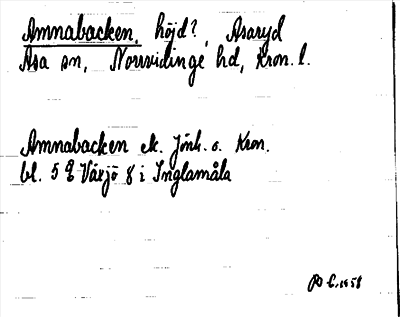 Amnabacken, höjd?, Asaryd
Asa sn, Norrvidinge hd, Kron. l.
Amnabacken ek. Jönk. o. Kron.
bl. 5 E Växjö 8 i Inglamåla
1958